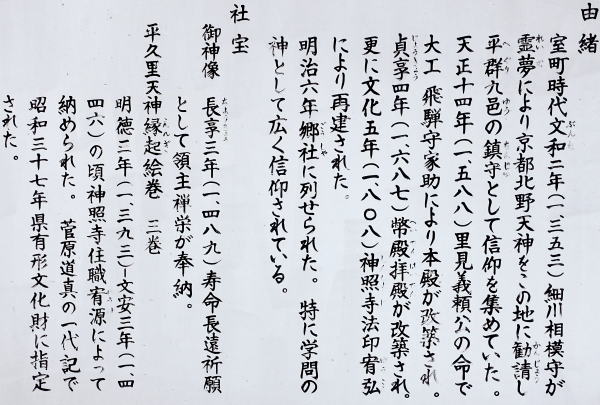 由緒
室町時代文和二年(一、三五三)細川相模守が
霊夢により京都北野天神をこの地に勧請し
平群九邑の鎮守として信仰を集めていた。
天正十四年(一、五八八)里見義頼公の命で
大工 飛騨守家助により本殿が改築され。
貞享四年(一、六八七)幣殿拝殿が改築され。
更に文化五年(一、八〇八)神照寺法印宥弘
により再建された。
明治六年郷社に列せられた。 特に学問の
神として広く信仰されている。
社宝
御神像 長享三年(一、四八九)寿命長遠祈願
として領主禅栄が奉納。
平久里天神縁起絵巻 三巻
明徳三年(一、三九三)―文安三年(一、四
四六)の頃神照寺住職宥源によって
納められた。 菅原道真の一代記で
昭和三十七年県有形文化財に指定
された。